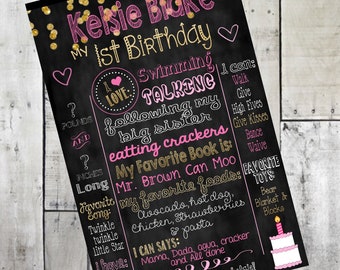 Kelsie Blake
My 1st Birthday
I ♥ LOVE:
Swimming
TALKING
following my
big sister
eatting crackers
My Favorite Book is:
Mr. Brown Can Moo
my favorite foods:
avocado, hot dog,
Chicken, Strawberries
& pasta
I CAN SAY:
Mama, Dada, agua, cracker
and All done
?
POUNDS
AND
?
INCHES
Long
Favorite
Song:
Twinkle
twinkle
little Star
I can:
Walk
Give
High Fives
Give Kisses
Dance
Waive
FAVORITE
TOYS:
Bear
Blanket &
Blocks